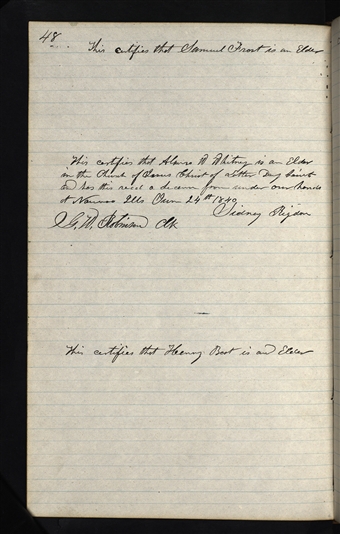 48
This certifies that Samuel Frost is an Elder
This certifies that Alonzo W Whitney is an Elder
in the Church of Jesus Christ of Latter Day Saints
and has this recd a decern from under our hands
at Nauvoo Ills June 24th 1840
Sidney Rigdon
G. W. Robinson Clk
This certifies that Henry Bost is an Elder